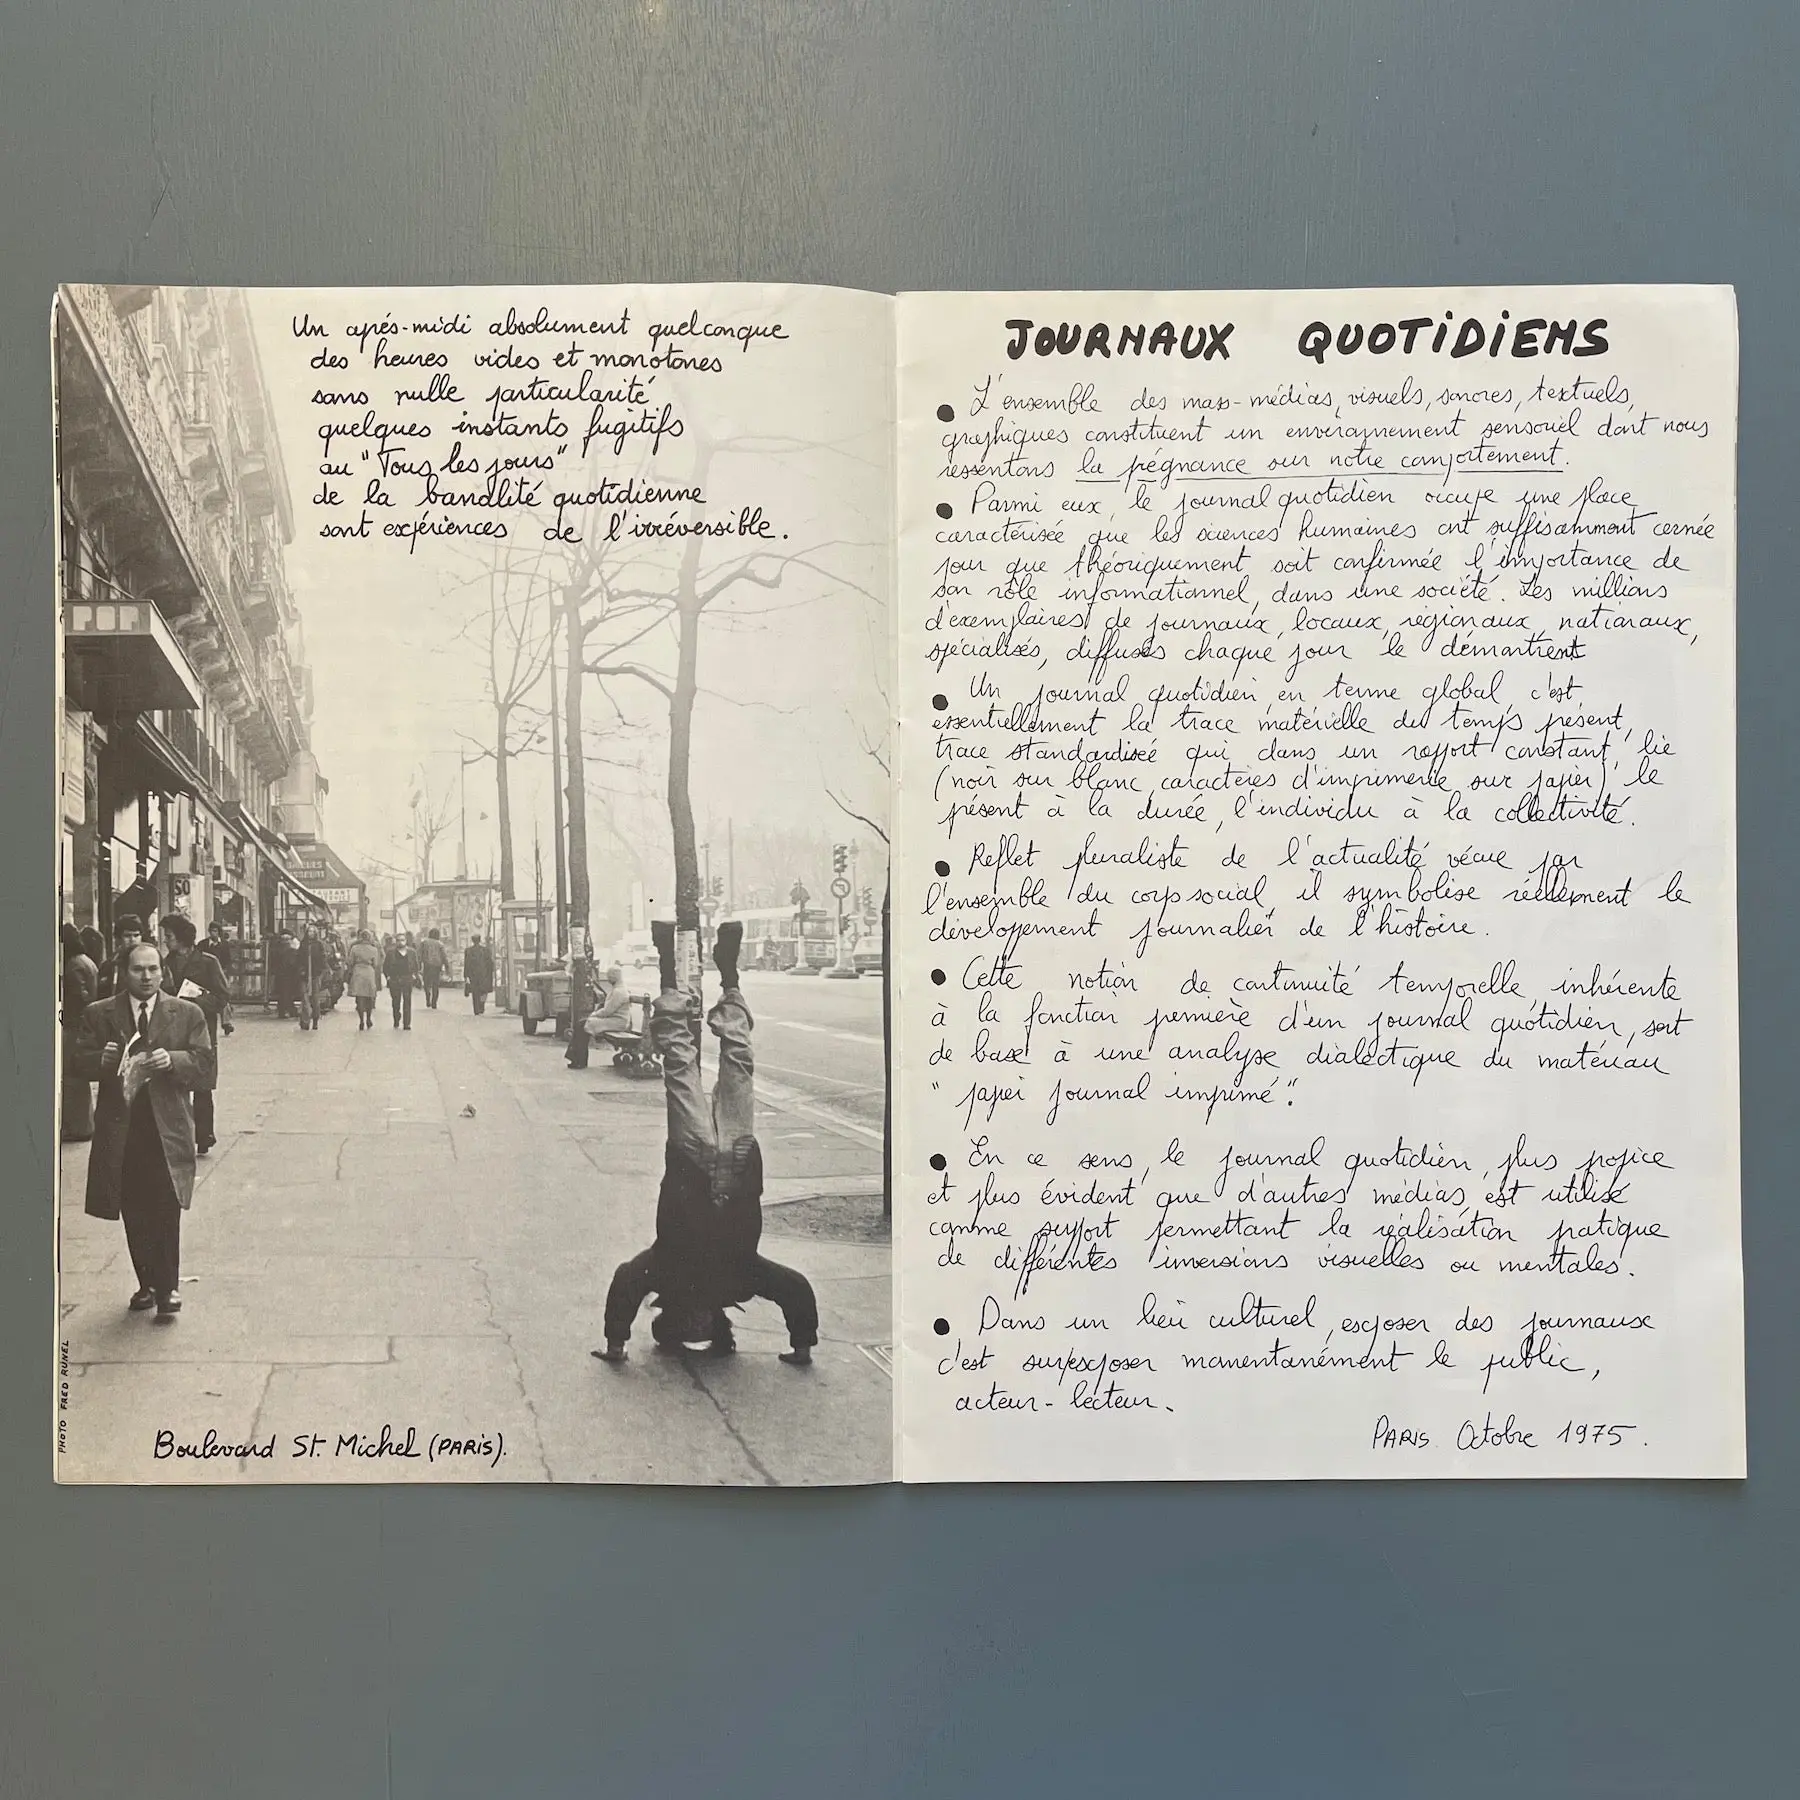 Un après-midi absolument quelconque
des heures vides et monotones
sans nulle particularité
quelques instants fugitifs
au "Tous les jours"
de la banalité quotidienne
sont expériences de l'irréversible.
POP
SO
PHOTO FRED RUNEL
Boulevard St. Michel (PARIS).
JOURNAUX QUOTIDIENS
● L'ensemble des mass-médias, visuels, sonores, textuels,
graphiques constituent un environnement sensoriel dont nous
ressentons la prégnance sur notre comportement.
● Parmi eux, le journal quotidien occupe une place
caractérisée que les sciences humaines ont suffisamment cernée
pour que théoriquement soit confirmée l'importance de
son rôle informationnel, dans une société. Les millions
d'exemplaires de journaux, locaux, régionaux, nationaux,
spécialisés, diffusés chaque jour le démontrent
● Un journal quotidien, en terme global c'est
essentiellement la trace matérielle du temps présent,
trace standardisée qui dans un rapport constant, lie
(noir sur blanc, caractères d'imprimerie sur papier) le
présent à la durée, l'individu à la collectivité.
● Reflet pluraliste de l'actualité vécue par
l'ensemble du corps social, il symbolise réellement le
développement journalier de l'histoire.
● Cette notion de continuité temporelle, inhérente
à la fonction première d'un journal quotidien, sert
de base à une analyse dialectique du matériau
"papier journal imprimé".
● En ce sens, le journal quotidien, plus propice
et plus évident que d'autres médias, est utilisé
comme support permettant la réalisation pratique
de différentes inversions visuelles ou mentales.
● Dans un lieu culturel, exposer des journaux
c'est sur/exposer momentanément le public,
acteur-lecteur.
PARIS Octobre 1975.